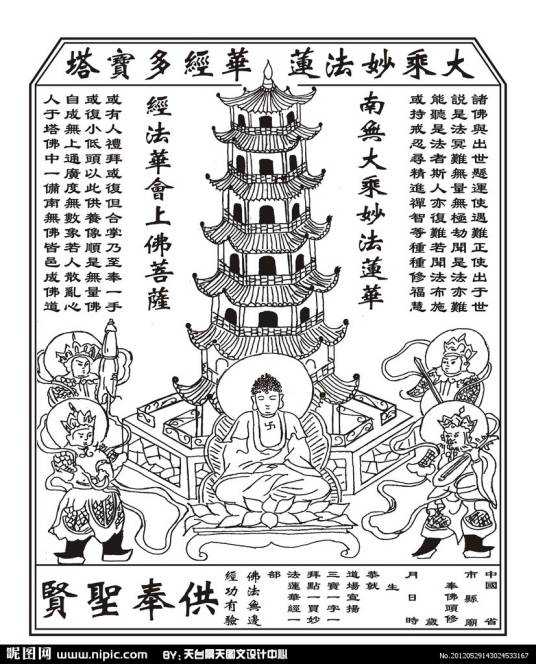 大乘妙法蓮華經多寶塔
諸佛與出世懸運使遇難正使出于世
説是法冥難無量無極劫聞是法亦難
能聽是法者斯人亦復難若聞法布施
或持戒忍尋精進禪智等種種修福慧
南無大乘妙法蓮華
經法華會上佛菩薩
或有人禮拜或復但合掌乃至奉一手
或復小低頭以此供養像順是無量佛
自成無上通廣度無數象若人散亂心
人于塔佛中一備南無佛皆邑成佛道
中國 省
市 縣 廟
奉佛頭修
歲
月 日 時
生
恭就
道場宣揚
三寶一字一
拜點一買妙
法蓮華經一
部
佛法無邊
經功有驗
供奉聖賢
昵图网 www.nipic.com BY：天台景天图文设计中心 No.20120529143024533167